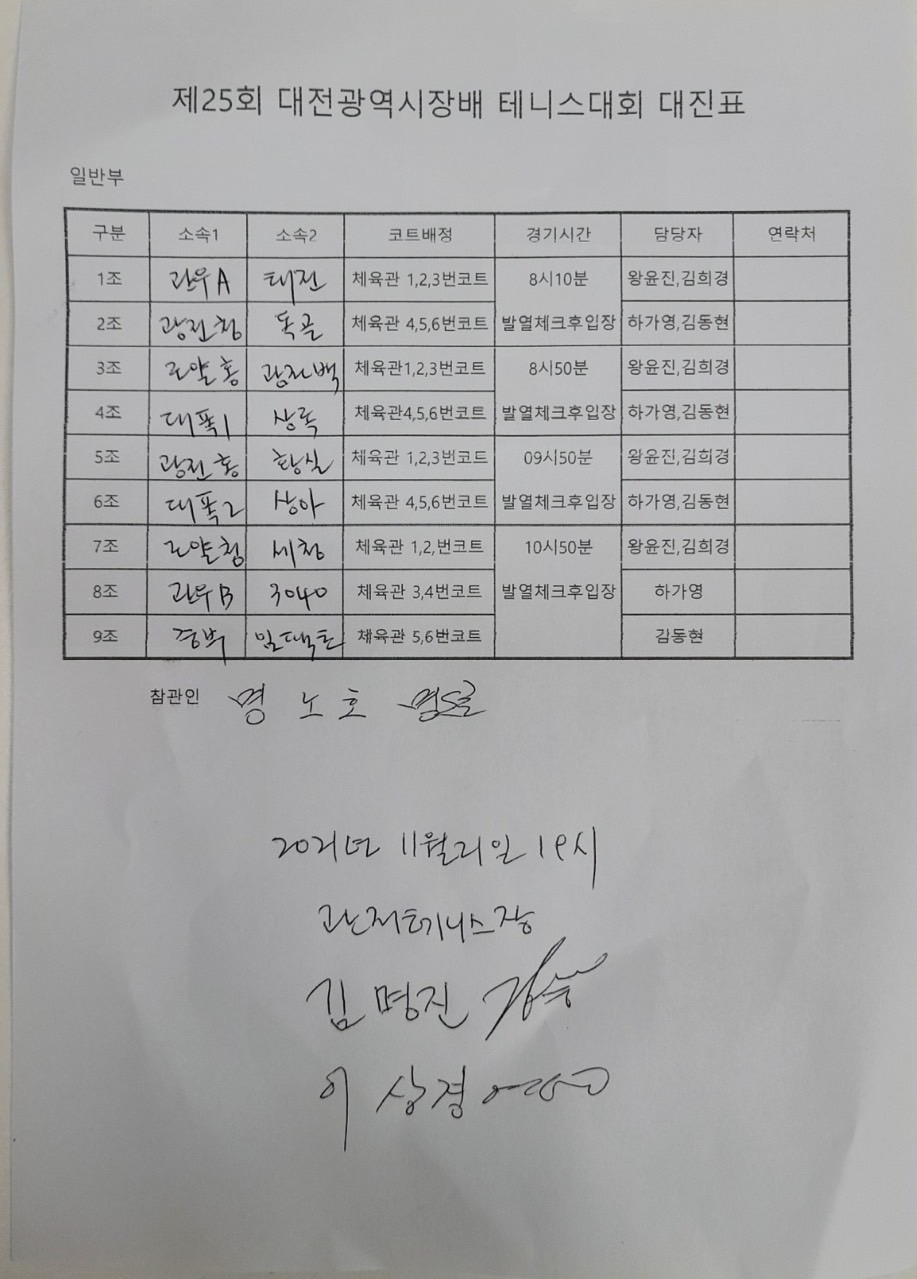 제25회 대전광역시장배 테니스대회 대진표
일반부
구분 소속1 소속2 코트배정 경기시간 담당자 연락처
1조 관우A 태전 체육관 1,2,3번코트 8시10분 왕윤진,김희경
2조 광진청 독골 체육관 4,5,6번코트 발열체크후입장 하가영,김동현
3조 도약홍 광저백 체육관1,2,3번코트 8시50분 왕윤진,김희경
4조 대폭1 상록 체육관4,5,6번코트 발열체크후입장 하가영,김동현
5조 광진홍 황실 체육관 1,2,3번코트 09시50분 왕윤진,김희경
6조 대폭2 상아 체육관 4,5,6번코트 발열체크후입장 하가영,김동현
7조 도약청 세청 체육관 1,2,번코트 10시50분 왕윤진,김희경
8조 관우B 3040 체육관 3,4번코트 발열체크후입장 하가영
9조 경부 체육관 5,6번코트 김동현
참관인 명노호
2021년 11월21일 19시
관저테니스장
김명진
이상경